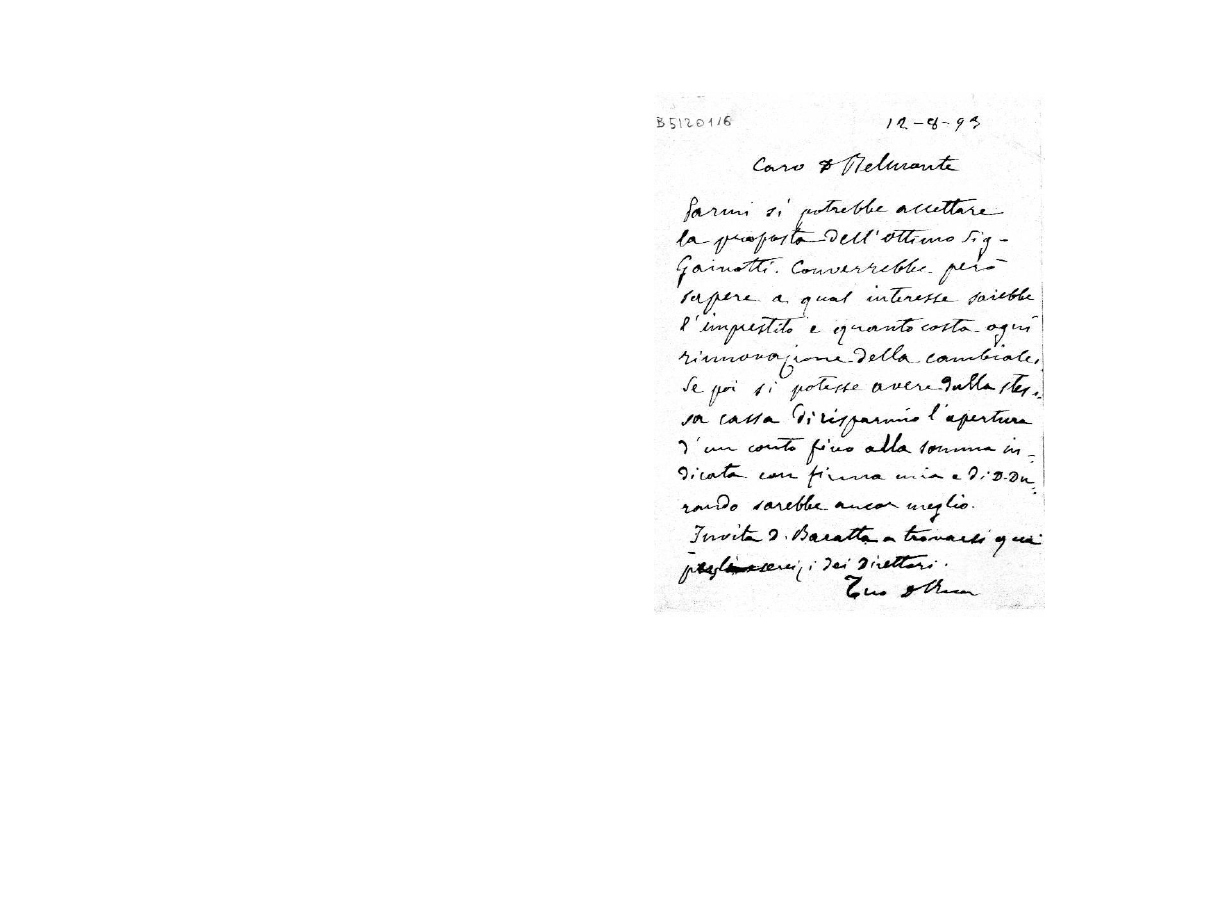 B51201/6
12-8-93
Caro D Belmonte
Parmi si potrebbe accettare
la proposta dell'ottimo Sig-
Gainotti. Converrebbe però
sapere a qual interesse sarebbe
l'imprestito e quanto costa ogni
rinnovazione della cambiale.
Se poi si potesse avere dalla stes-
sa cassa di risparmio l'apertura
d'un conto fino alla somma in-
dicata con firma mia e di D. Du-
rando sarebbe ancor meglio.
Invita D. Baratta a trovarsi qui
esercizi dei Direttori.
Tuo D Rua